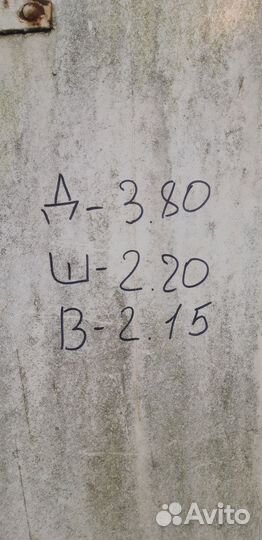 Д - 3.80
Ш - 2.20
В - 2.15
Avito